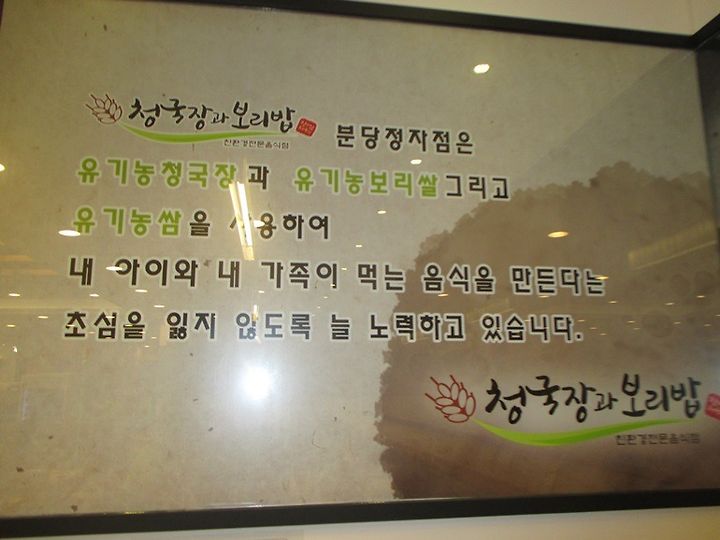 청국장과보리밥 분당정자점은
친환경전문음식점
유기농청국장과 유기농보리쌀그리고
유기농쌈을 사용하여
내 아이와 내 가족이 먹는 음식을 만든다는
초심을 잃지 않도록 늘 노력하고 있습니다.
청국장과보리밥
친환경전문음식점